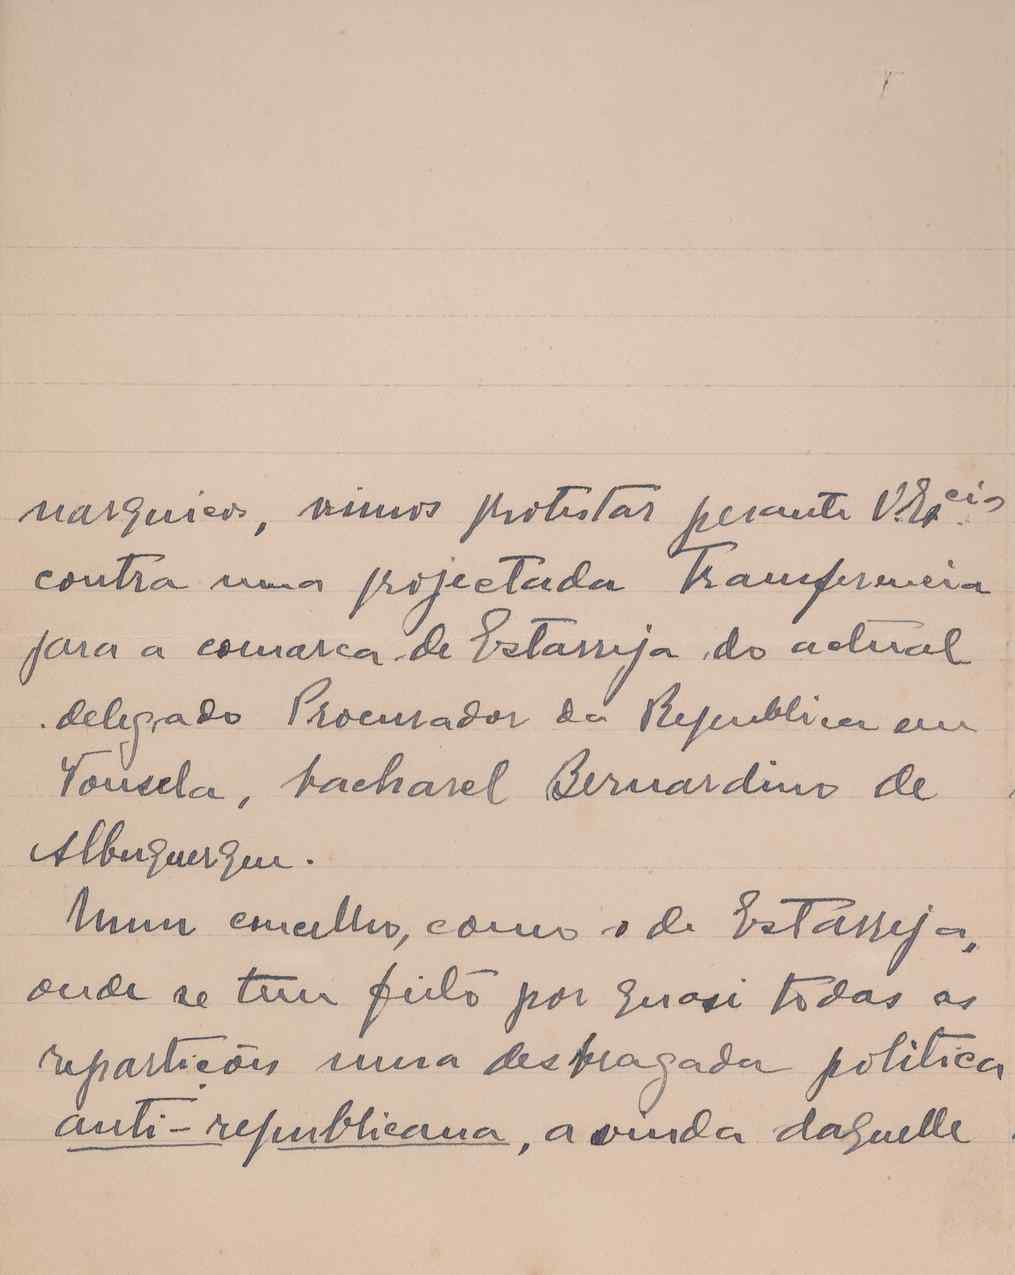 narquicos, vimos protestar perante V. Ex.cias
contra uma projectada transferencia
para a comarca de Estarreja do actual
delegado Procurador da Republica em
Vouzela, bacharel Bernardino de
Albuquerque.
Num concelho, como o de Estarreja,
onde se tem feito por quasi todas as
repartições uma desbragada politica
anti-republicana, a vinda daquelle